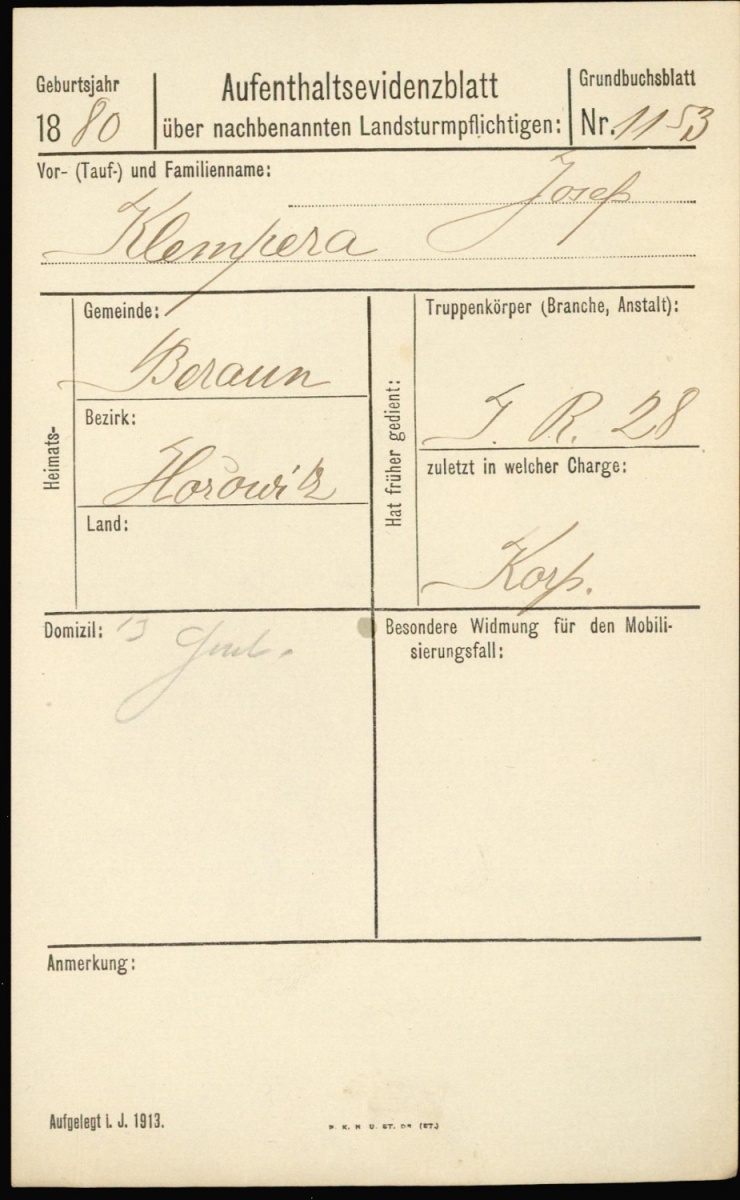 Geburtsjahr
1880
Aufenthaltsevidenzblatt
über nachbenannten Landsturmpflichtigen:
Grundbuchsblatt
Nr. 1153
Vor- (Tauf-) und Familienname:
Josef
Klempera
Heimats-
Gemeinde:
Beraun
Bezirk:
Hořowitz
Land:
Hat früher gedient:
Truppenkörper (Branche, Anstalt):
I. R. 28
zuletzt in welcher Charge:
Korp.
Domizil: 13
Besondere Widmung für den Mobili-
sierungsfall:
Anmerkung:
Aufgelegt i. J. 1913.